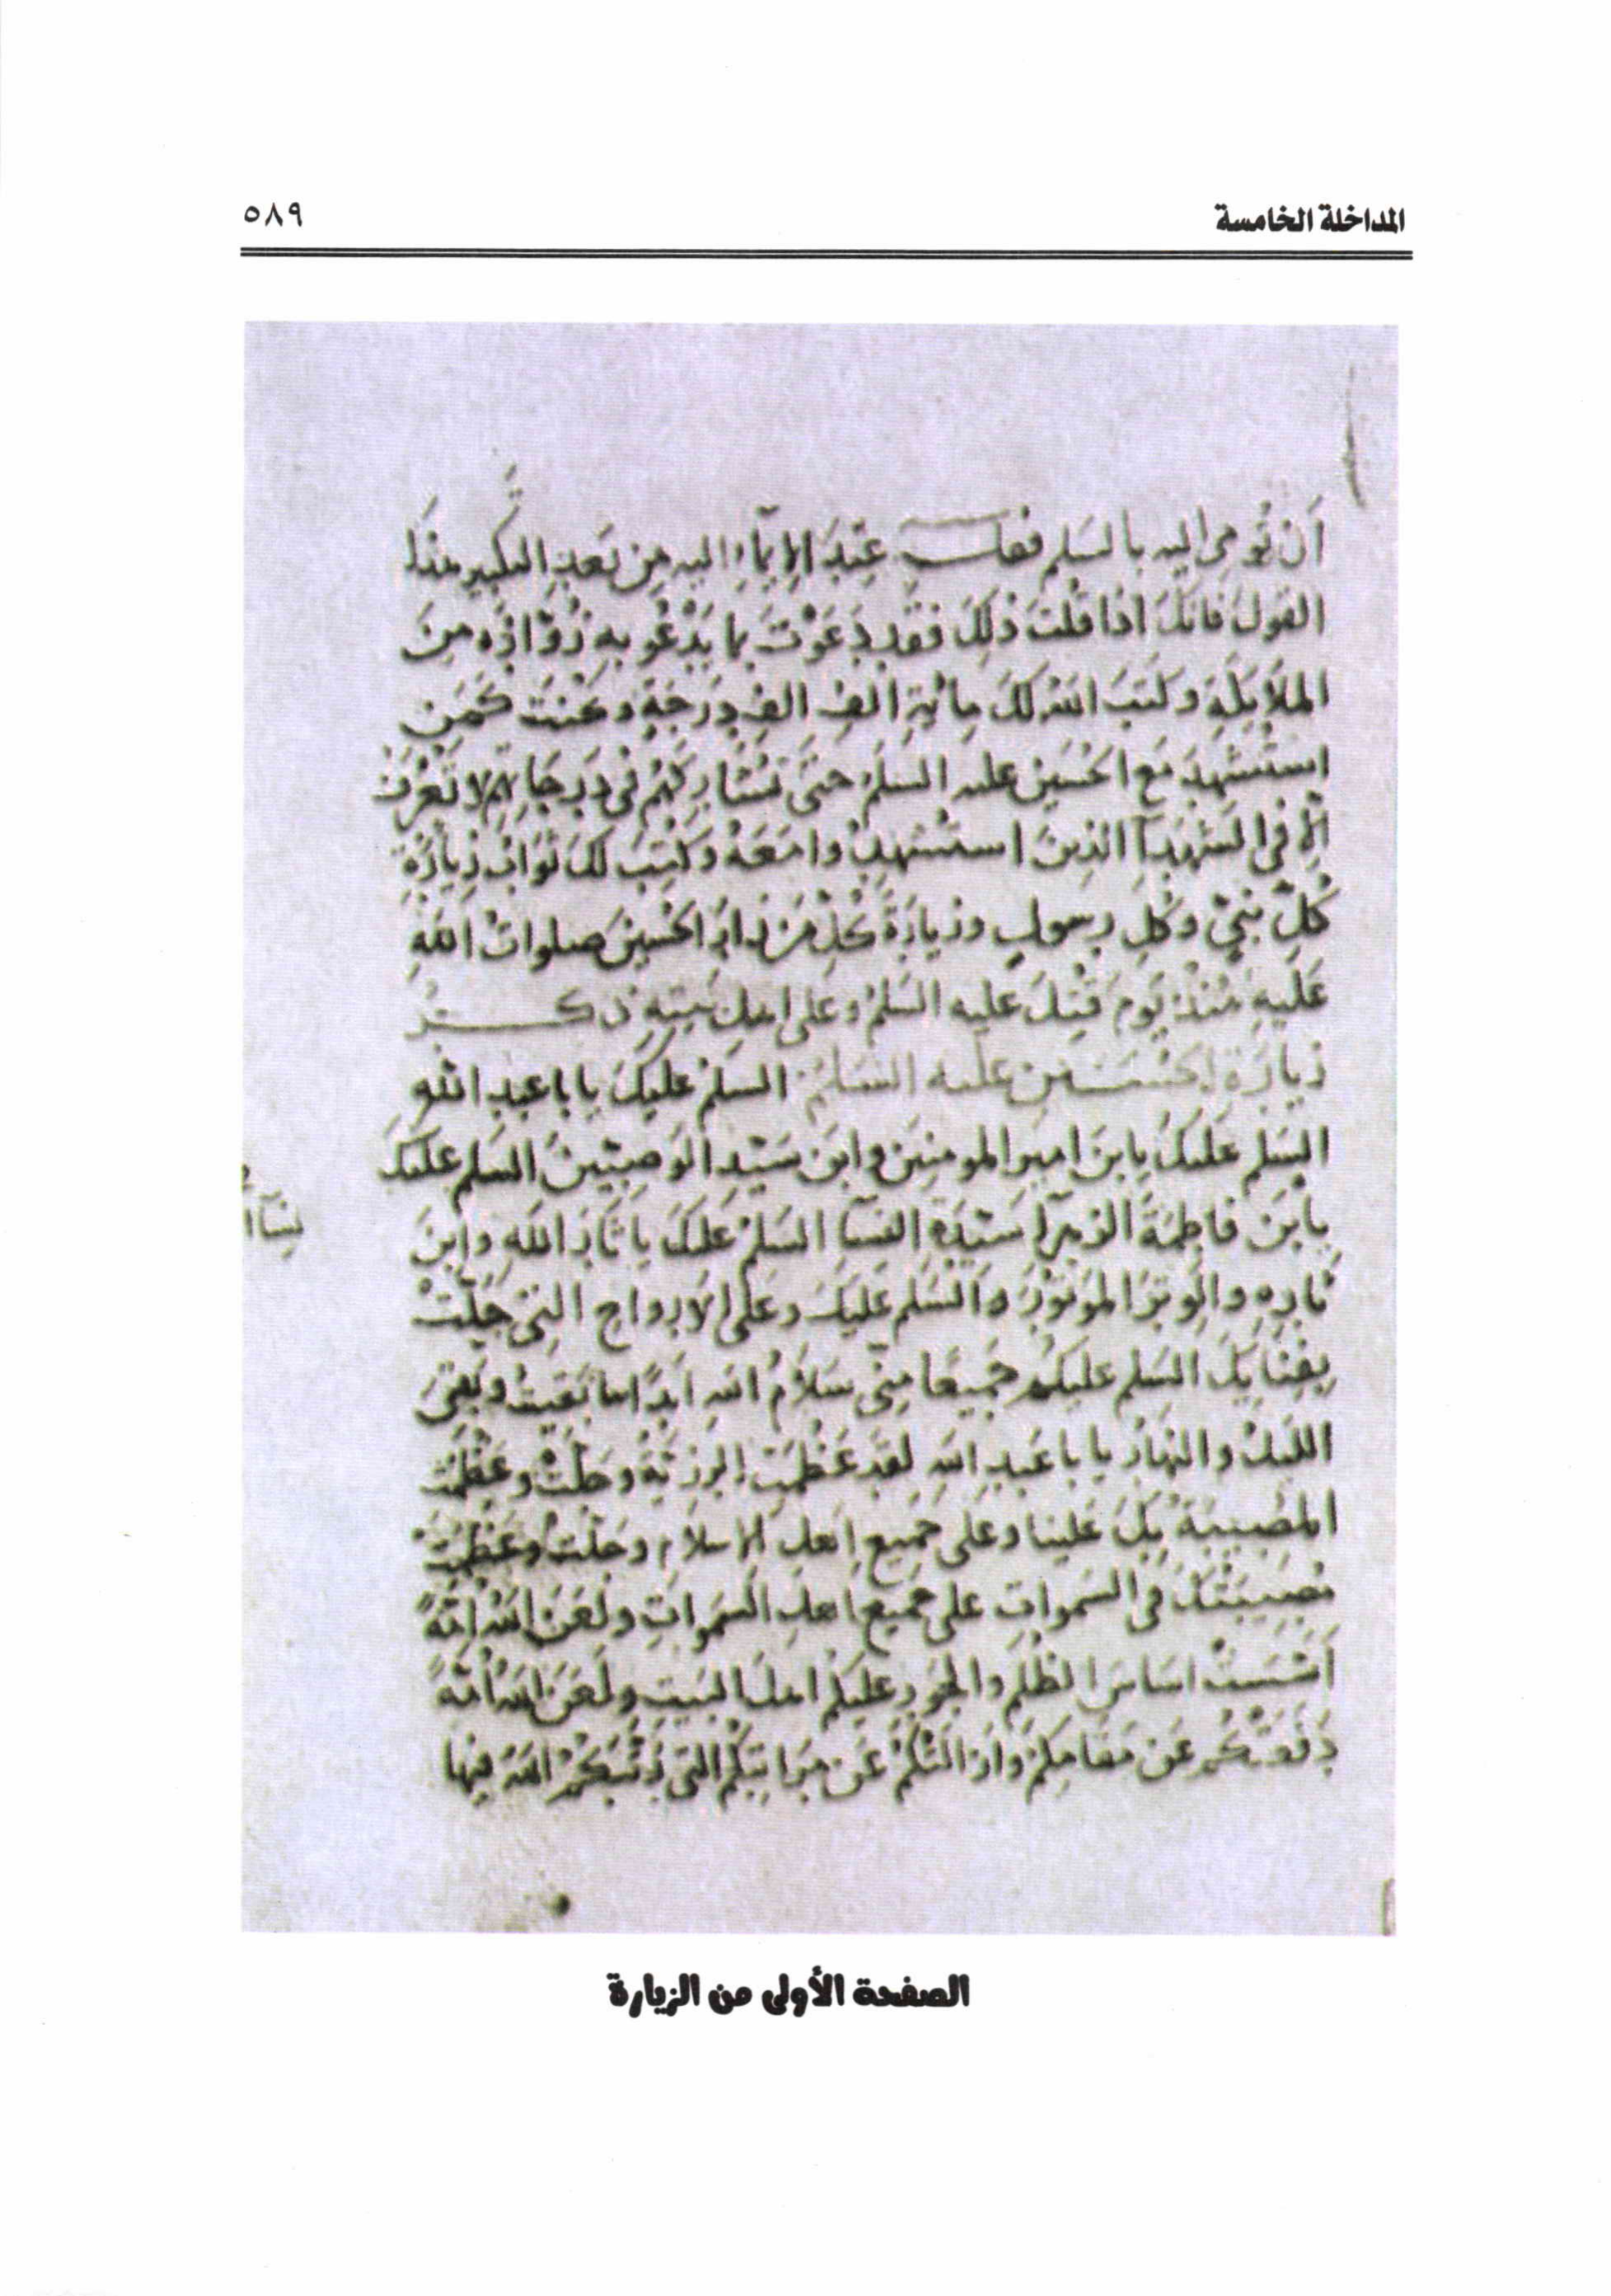 المداخلة الخامسة
٥٨٩
أن تُومى اليه بالسلم فقلت عِندَ الإيمآءِ اليه مِن بَعدِ التكبير هذا
القولَ فانكَ اذا قلتَ ذلك فقد دَعَوْتَ بما يَدْعُو به زُوّارُه مِنَ
الملايكةِ وكتبَ الله لكَ مايةَ الف الفِ درجةٍ وكنت كمَن
استُشهِدَ مَع الحُسَين عليه السلمُ حتى تُشارِكَهُم فى دَرجاتهم لا تُعرَفُ
إلّا فى الشهدآ الذين استشهدوا معَهُ وكُتِبَ لك ثوابُ زيارَةِ
كُلّ نبيّ وكُلِ رسولٍ وزيارَةُ كُلّ مَن زار الحُسينَ صلواتُ اللهِ
عَلَيهِ مُنذُ يَومَ قُتِلَ عليه السلمُ وعلى اهل بَيته ذكر
زيارَة الحسين عليه السلم السلمُ عليكَ يابا عبدِ الله
السلم عليكَ يابنَ اميرِ المومنين وابن سَيّدِ الوَصِيّينَ السلم عليكَ
يابنَ فاطِمَةَ الزهرآ سَيّدَةِ النسآ السلمُ عليكَ يا ثارَ الله وابنَ
ثارِهِ والوِترَ المَوتُورَ والسّلمُ عليكَ وعَلى الارواحِ التى حَلّتْ
بِفِنايكَ السلم عليكم جَميعًا مِنّى سَلامُ الله ابَدًا ما بقيتُ وبَقِىَ
الليلُ والنهارُ يابا عَبدِ اللهِ لقد عَظُمتِ الرزيّةُ وجَلّتْ وعَظُمَتِ
المُصيبَةُ بِكَ علينا وعلى جَميعِ اهلِ الاسلامِ وجَلّتْ وعَظُمَتْ
مُصيبَتُكَ فى السموات على جَميعِ اهلِ السمواتِ ولعَنَ اللهُ امّةً
أسّستْ اساسَ الظلم والجَورِ عليكم اهلَ البَيتِ ولَعَنَ اللهُ امّةً
دَفَعَتْكُم عن مَقامِكم وازالَتكُم عَن مَراتِبِكم التى رَتّبَكُمُ اللهُ فيها
الصفحة الأولى من الزيارة